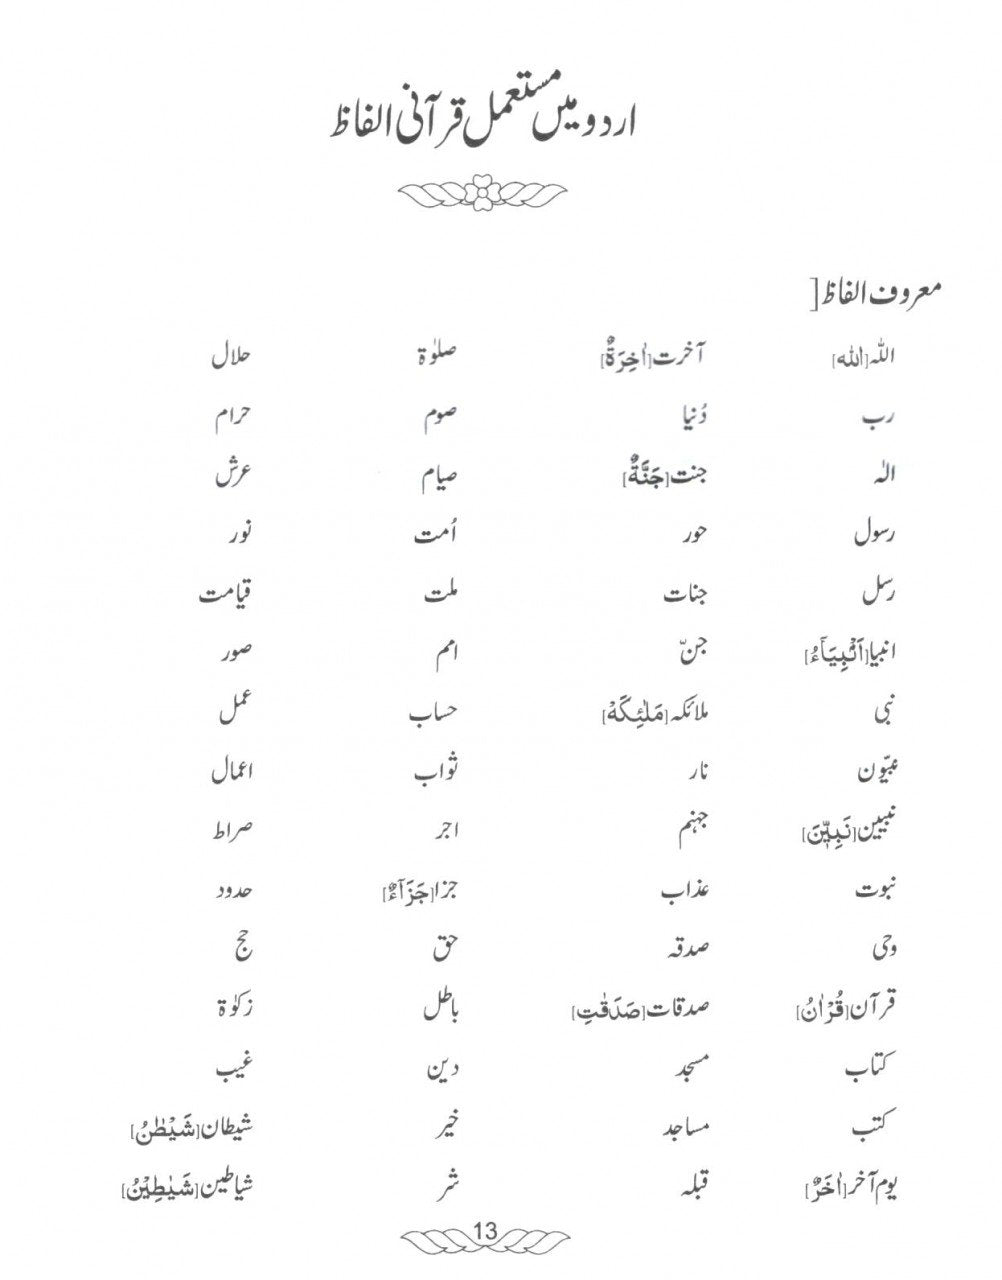 اردو میں مستعمل قرآنی الفاظ
معروف الفاظ [
اللہ [الله] آخرت [اٰخِرَةٌ] صلوٰۃ حلال
رب دُنیا صوم حرام
الٰہ جنت [جَنَّةٌ] صیام عرش
رسول حور اُمت نور
رسل جنات ملت قیامت
انبیا [اَنْۢبِيَآءُ] جنّ امم صور
نبی ملائکہ [مَلٰٓئِكَةْ] حساب عمل
نبیّون نار ثواب اعمال
نبیین [نَبِيّٖنَ] جہنم اجر صراط
نبوت عذاب جزا [جَزَآءٌ] حدود
وحی صدقہ حق حج
قرآن [قُرْاٰنُ] صدقات [صَدَقٰتِ] باطل زکوٰۃ
کتاب مسجد دین غیب
کتب مساجد خیر شیطان [شَيْطٰنُ]
یوم آخر [اٰخَرٌ] قبلہ شر شیاطین [شَيٰطِيْنُ]
13